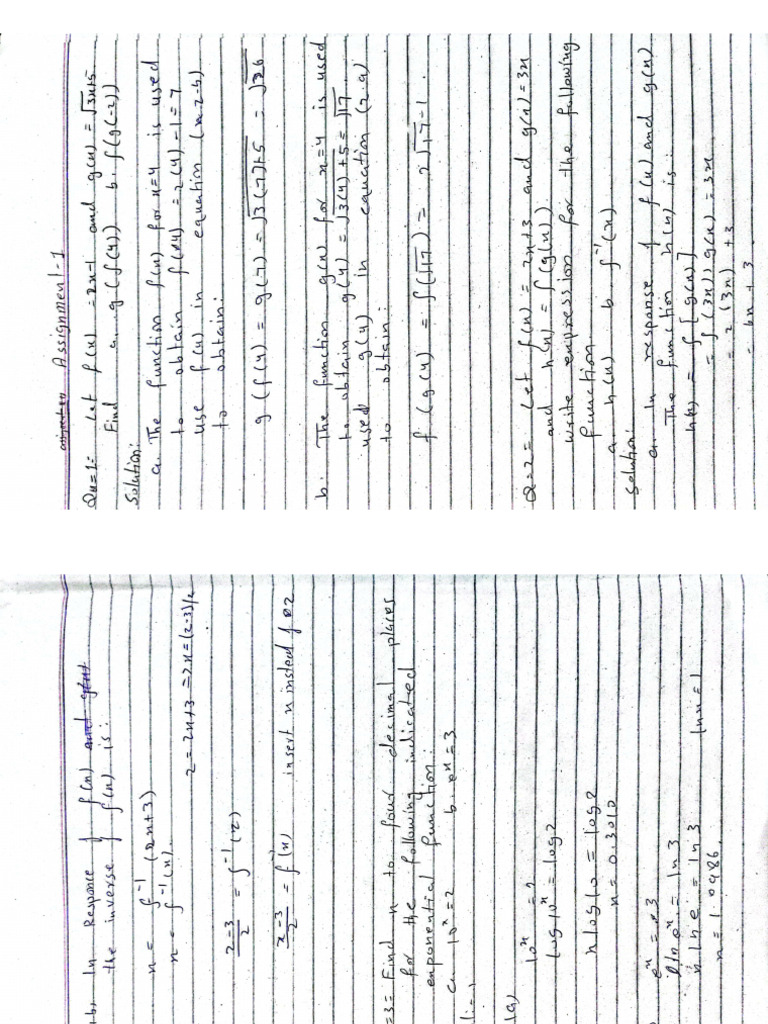 Assignment-1
Qu=1= Let f(x) = 2x-1 and g(x) = √3x+5
Find a. g(f(4)) b. f(g(-2))
Solution:
a. The function f(x) for x=4 is used
to obtain f(x4) = 2(4)-1=7
use f(x) in equation (x-2-b)
to obtain:
g(f(4) = g(7) = √3(7)+5 = √26
b. The function g(x) for x=4 is used
to obtain g(4) = √3(4)+5 = √17
used g(4) in equation (2-a)
to obtain:
f(g(4) = f(√17) = 2√17-1.
Q=2= Let f(x) = 2x+3 and g(x)=3x
and h(x) = f(g(x))
write expression for the following
function.
a. h(x) b. f⁻¹(x)
Solution:
a. In response of f(x) and g(x)
The function h(x) is:
h(x) = f[g(x)]
= f(3x)) g(x) = 3x
= 2(3x) +3
= 6x + 3
b, In Response of f(x) and g(x)
the inverse of f(x) is:
x = f⁻¹(2x+3)
x = f⁻¹(x).
2 = 2x+3 = 2x = (2-3)/2
2-3/2 = f⁻¹(2)
x-3/2 = f⁻¹(x) insert x instead of 2
=3= Find x to four decimal places
for the following indicated
exponential function:
a. 10ˣ=2 b. eˣ=3
(a)
10ˣ = 2
log10ˣ = log2
x log10 = log2
x = 0.3010
eˣ = 3
ln eˣ = ln3
x ln e = ln3 lnx=1
x = 1.0986.